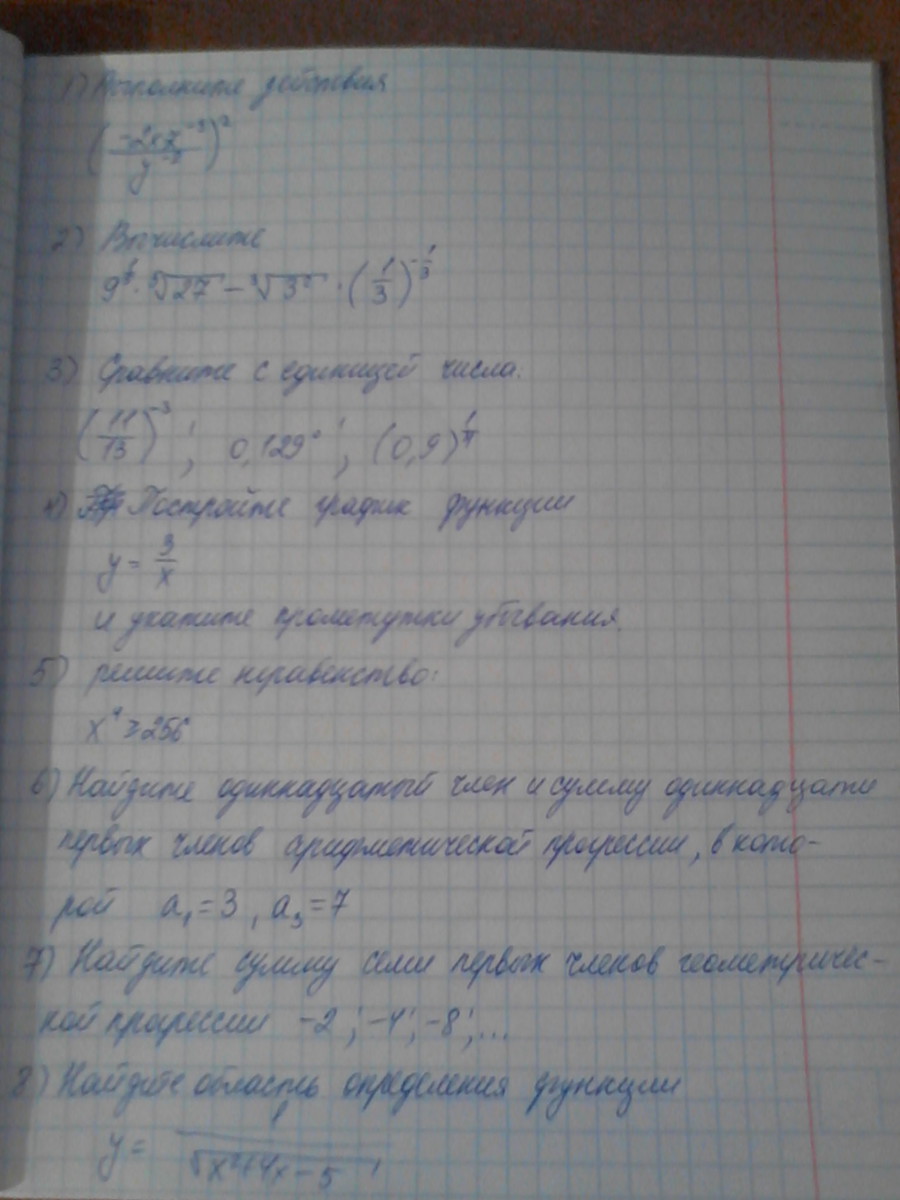 1) Выполните действия
2) Вычислите
3) Сравните с единицей числа:
(11/13)⁻³ ; 0,129° ; (0,9)
4) Постройте график функции
y = 3/x
и укажите промежутки убывания.
5) решите неравенство:
x⁴ ≥ 256
6) Найдите одиннадцатый член и сумму одиннадцати
первых членов арифметической прогрессии, в кото-
рой a₁=3, a₃=7
7) Найдите сумму семи первых членов геометричес-
кой прогрессии -2; -4; -8; ...
8) Найдите область определения функции
y = 1/√(x²+4x-5)